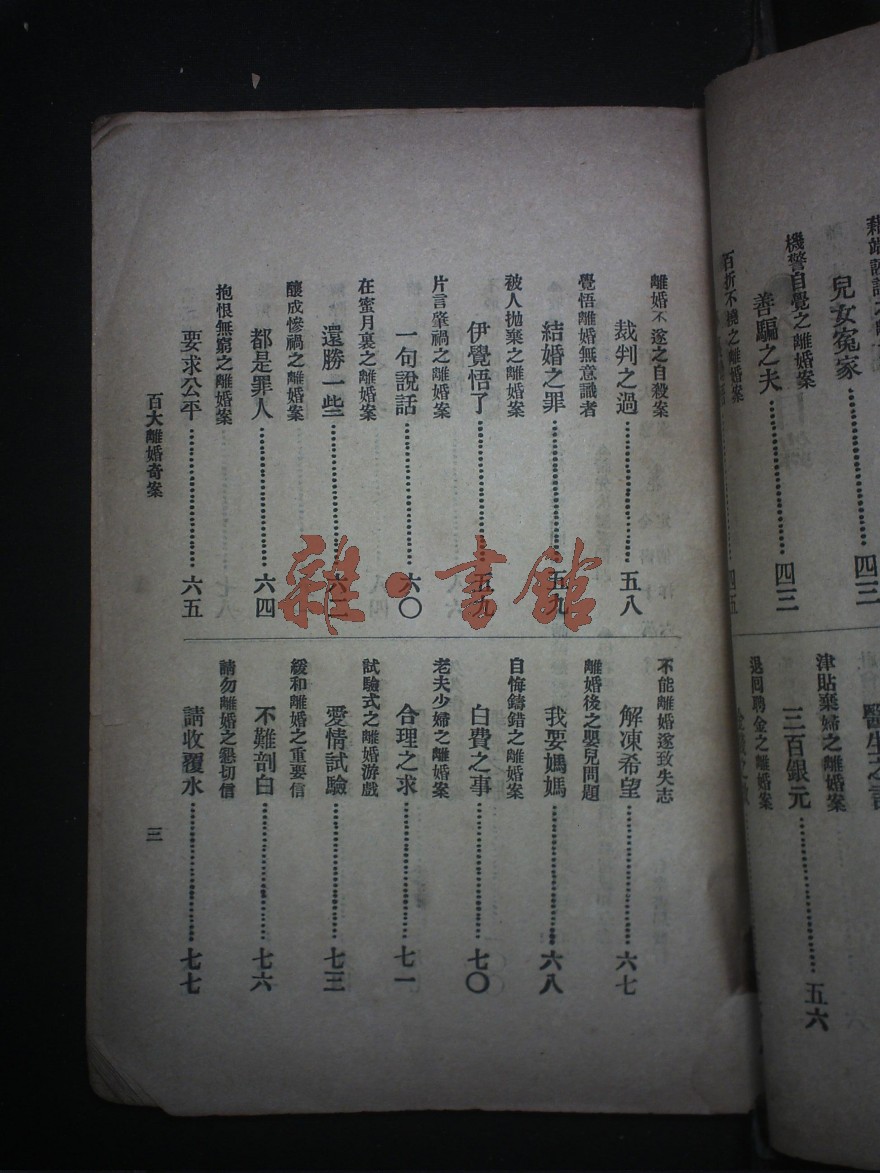 兒女寃家……四三
機警自覺之離婚案
善騙之夫……四三
百折不撓之離婚案
四五
醫生之言
津貼棄婦之離婚案
三百銀元……五六
退回聘金之離婚案
離婚不遂之自殺案
裁判之過……五八
覺悟離婚無意識者
結婚之罪……五九
被人拋棄之離婚案
伊覺悟了……五九
片言肇禍之離婚案
一句說話……六〇
在蜜月裏之離婚案
還勝一些……六二
釀成慘禍之離婚案
都是罪人……六四
抱恨無窮之離婚案
要求公平……六五
不能離婚遂致失志
解凍希望……六七
離婚後之嬰兒問題
我要媽媽……六八
自悔鑄錯之離婚案
白費之事……七〇
老夫少婦之離婚案
合理之求……七一
試驗式之離婚游戲
愛情試驗……七三
緩和離婚之重要信
不難剖白……七六
請勿離婚之懇切信
請收覆水……七七
百大離婚奇案
三
雜·書館